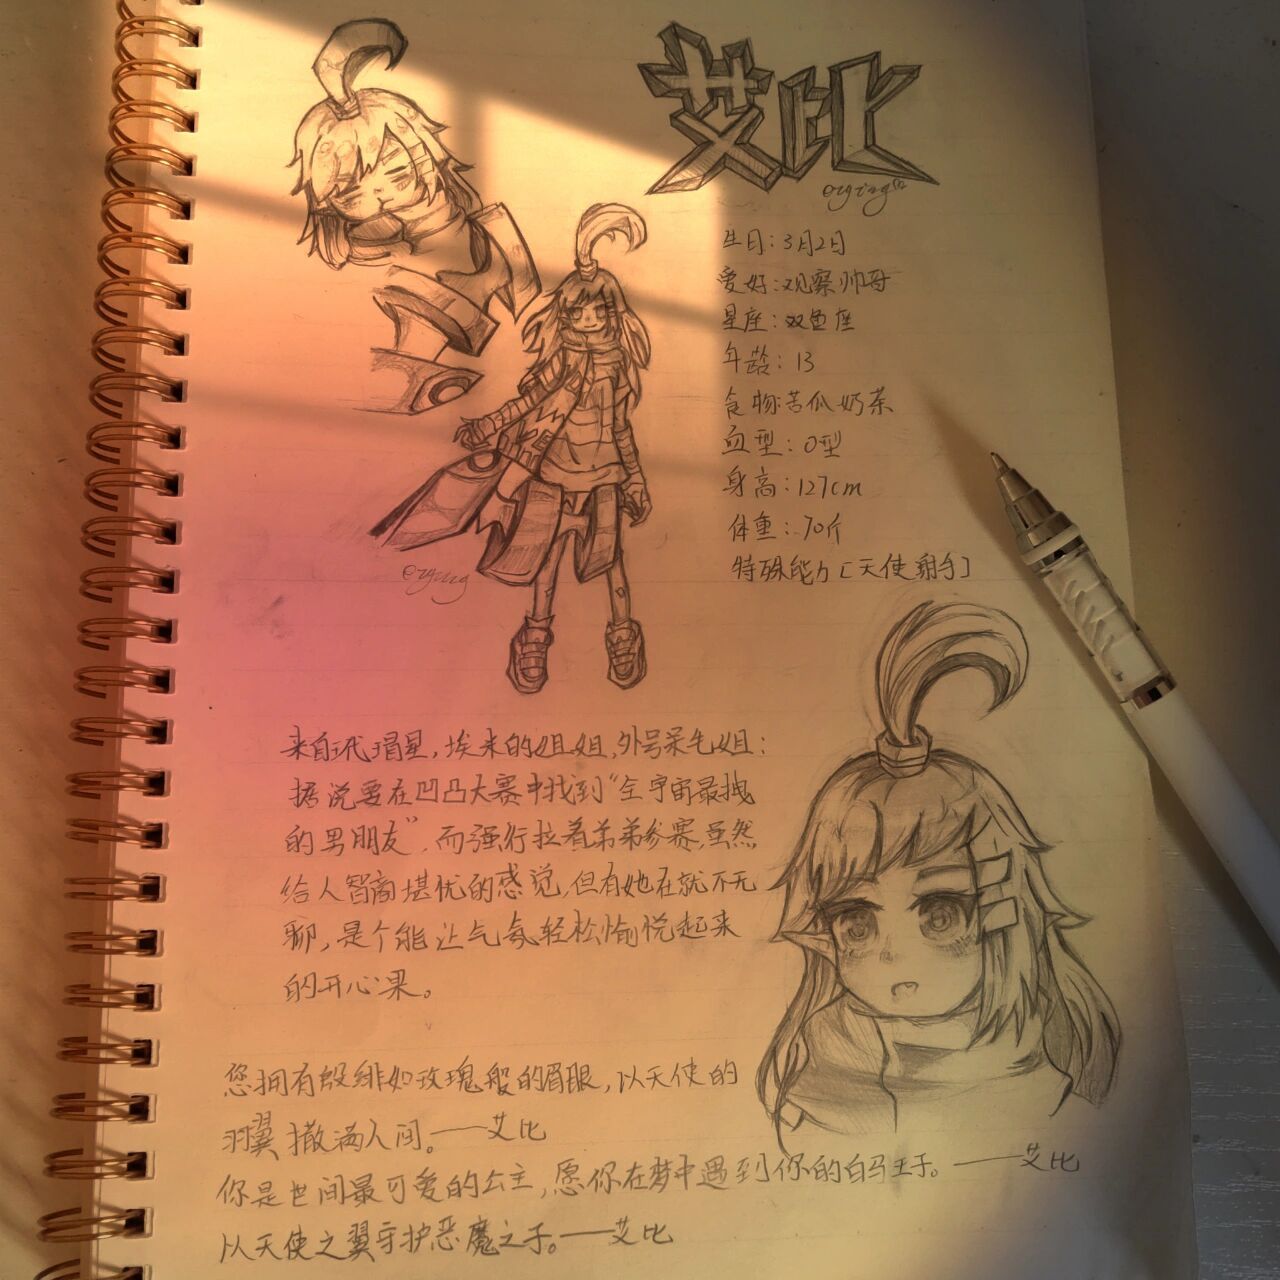 艾比
生日：3月2日
爱好：观察帅哥
星座：双鱼座
年龄：13
食物：苦瓜奶茶
血型：O型
身高：127cm
体重：70斤
特殊能力[天使射手]
来自玳瑁星，埃米的姐姐，外号呆毛姐；
据说要在凹凸大赛中找到“全宇宙最拽
的男朋友”，而强行拉着弟弟参赛，虽然
给人智商堪忧的感觉，但有她在就不无
聊，是个能让气氛轻松愉悦起来
的开心果。
您拥有殷绯如玫瑰般的眉眼，以天使的
羽翼撒满人间。——艾比
你是世间最可爱的公主，愿你在梦中遇到你的白马王子。——艾比
以天使之翼守护恶魔之子。——艾比